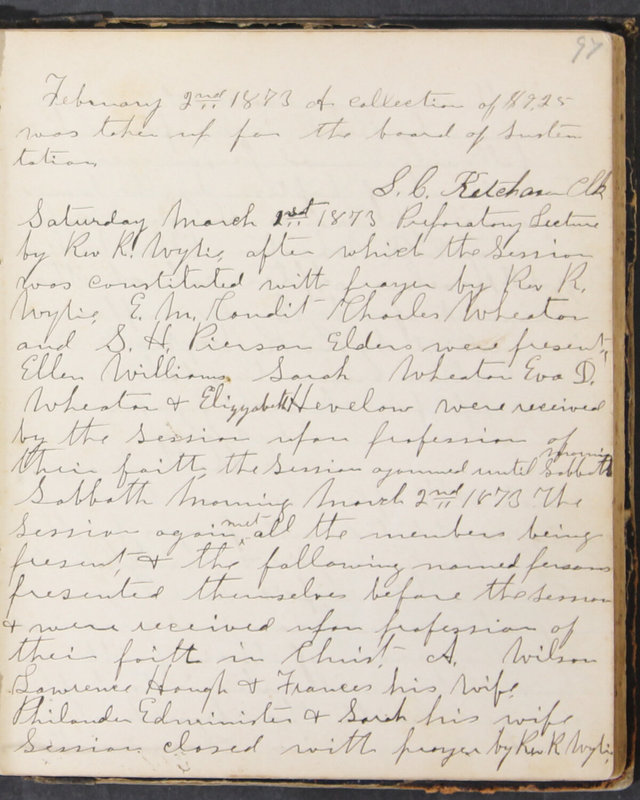 97
February 2nd 1873 A collection of $9.25
was taken up for the board of Susten
tation,
S. C. Ketcham Clk
Saturday March 1st 1873 Preforatory Lecture
by Rev R. Wylie, after which the Session
was constituted with prayer by Rev R.
Wylie, E. M. Condit Charles Wheaton
and S. H. Pierson Elders were present,
Ellen Williams Sarah Wheaton Eva D.
Wheaton & Elizyabeth Hevelow were received
by the Session upon profession of
their faith, the Session ajouned until Sabbath morning
Sabbath Morning March 2nd 1873 The
Session again met all the members being
present, & the following named persons
presented themselves before the Session
& were received upon profession of
their faith in Christ A. Wilson
Lawrence Hough & Frances his Wife,
Philander Edminister & Sarah his wife
Session closed with prayer by Rev R. Wylie,